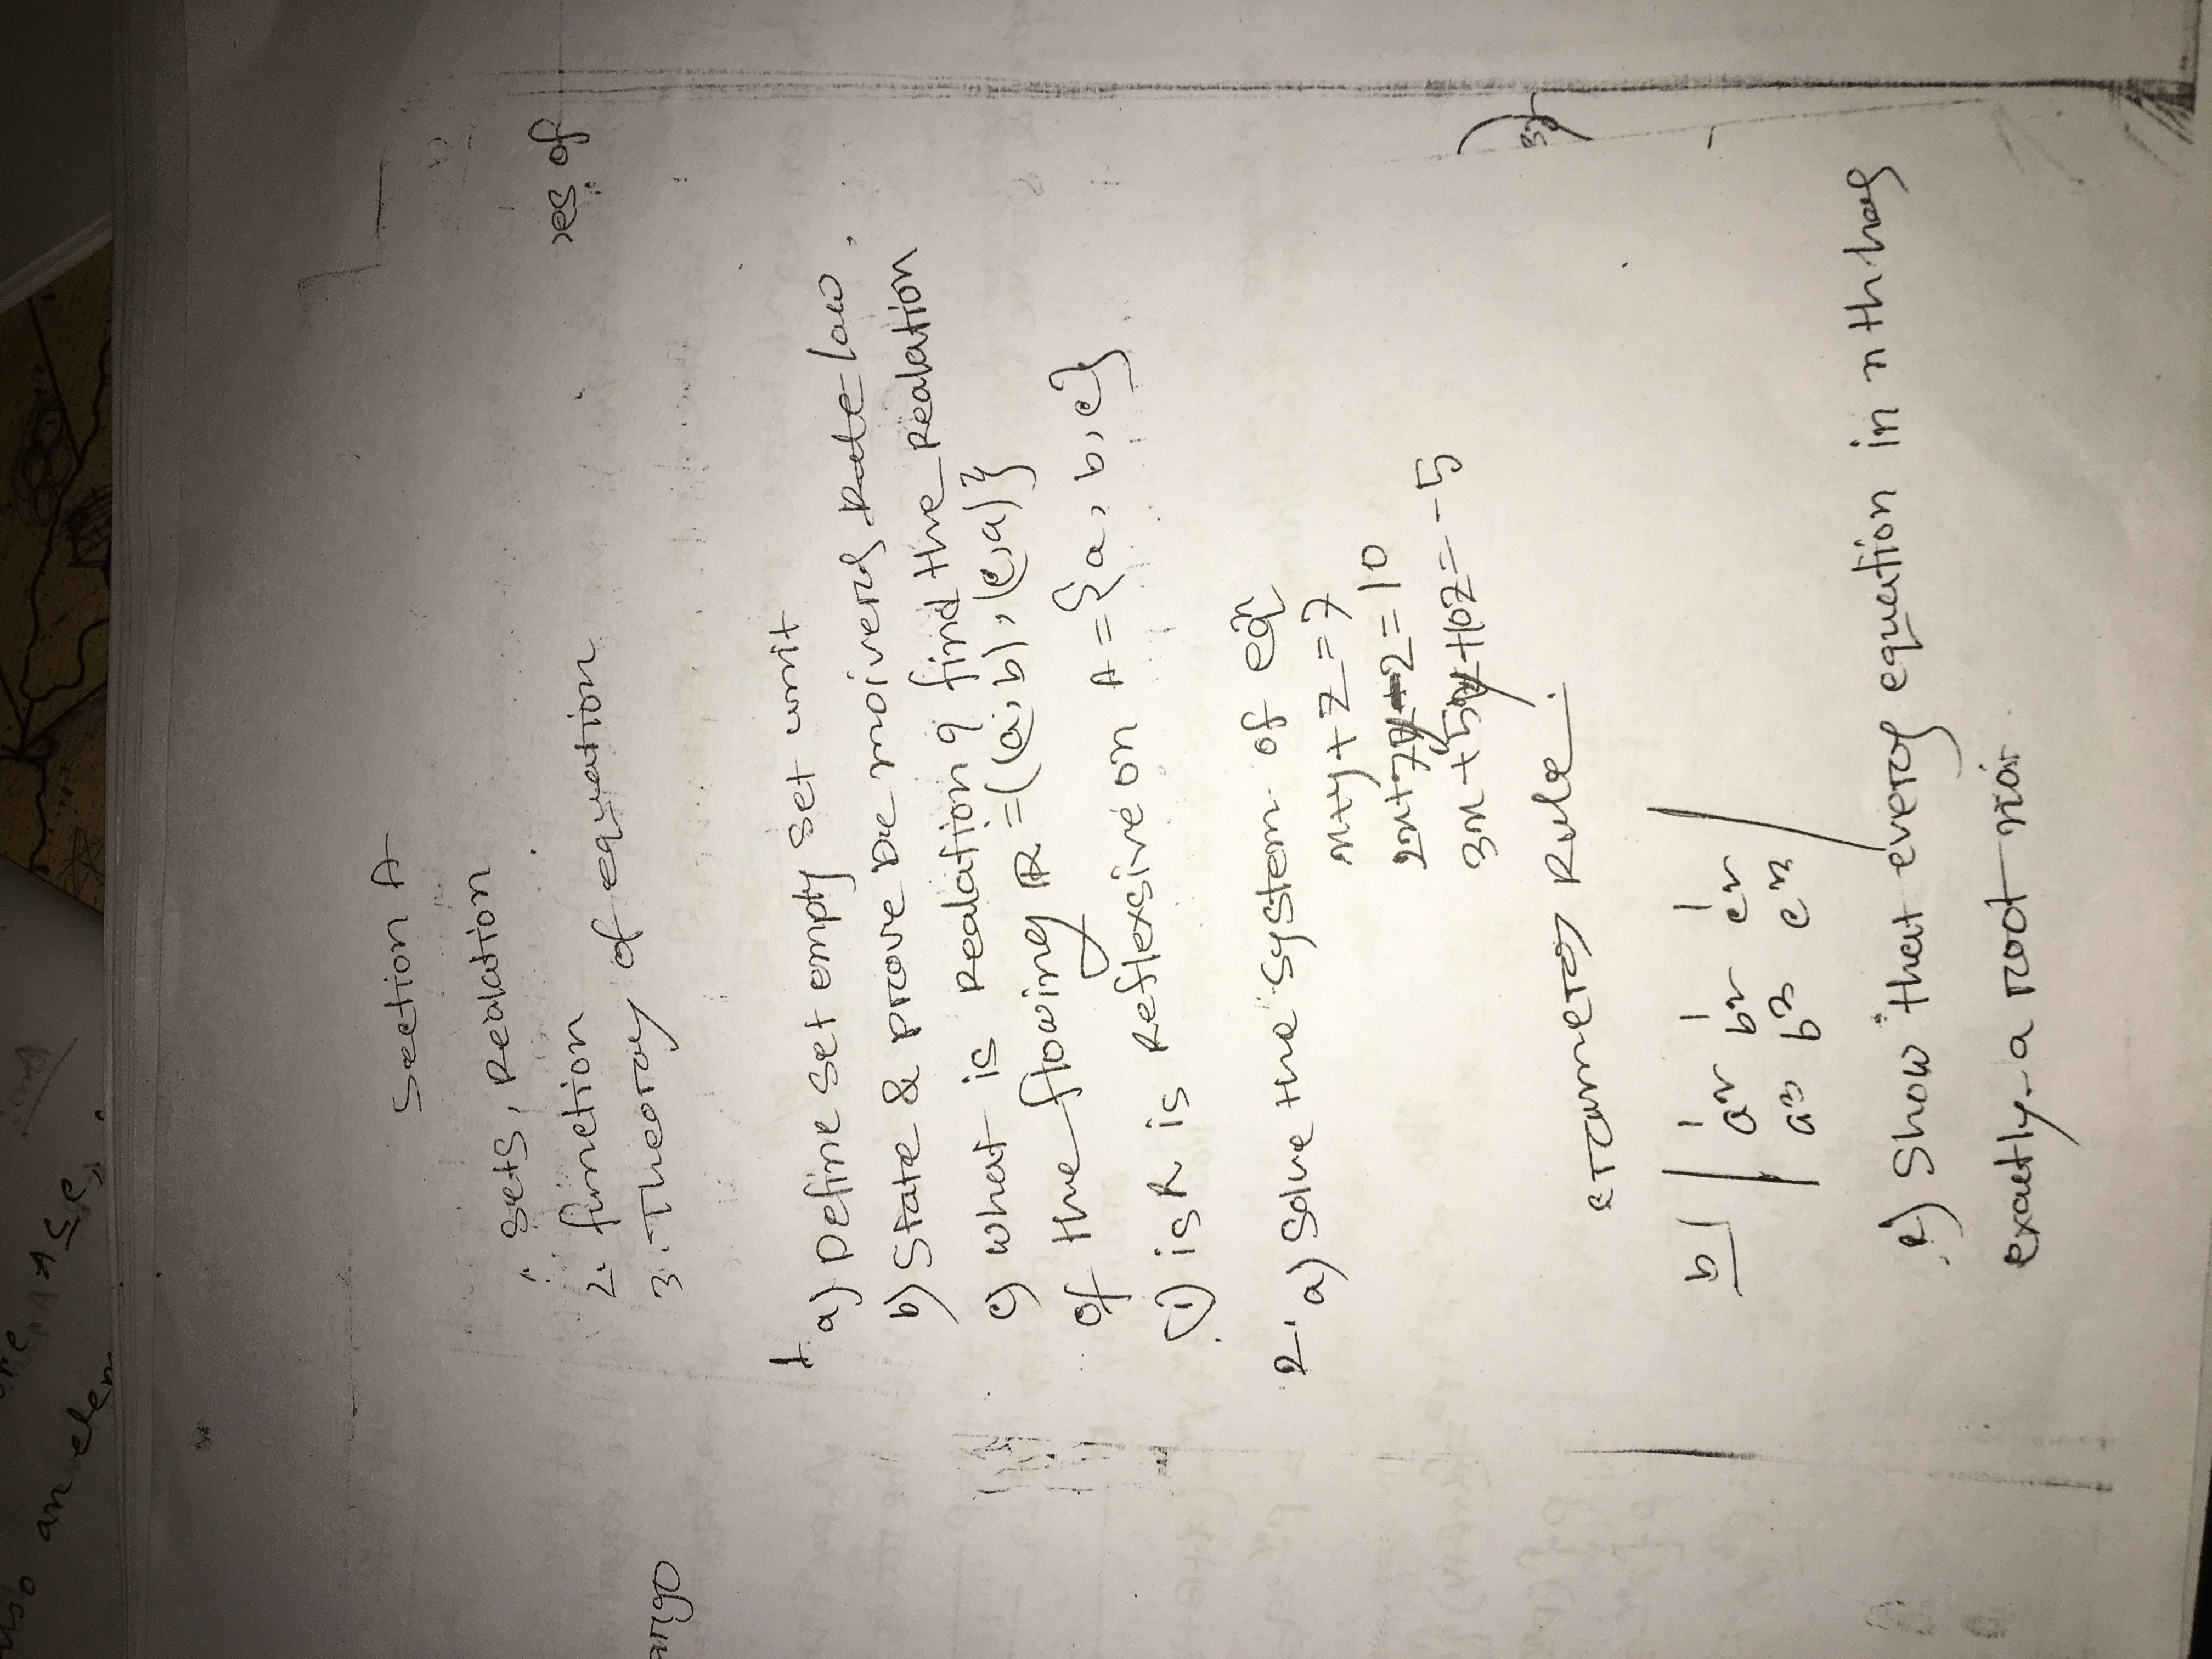 an elem
A ⊆ C,
Section A
Sets, Realation
2. function
3. Theoray of equation
es of
argo
1
a) Define set empty set unit
b) State & prove De moivers Rule law.
c) what is Realation? find the Realation
of the flowing R = {(a,b), (c,a)}
(i) is R is Reflexsive on A = {a, b, c}
2. a) Solve the system of eqn
x+y+z=7
2x+7y+z=10
3x+5y+10z=-5
cramers Rule.
b) | 1 1 1 |
a² b² c²
a3 b3 c3
c) Show that every equation in nth has
exactly a root